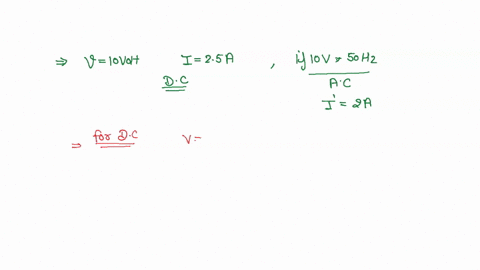 ⇒ V=10Volt I=2.5A , if 10V, 50Hz
D.C A.C
I' = 2A
⇒ for D.C V=